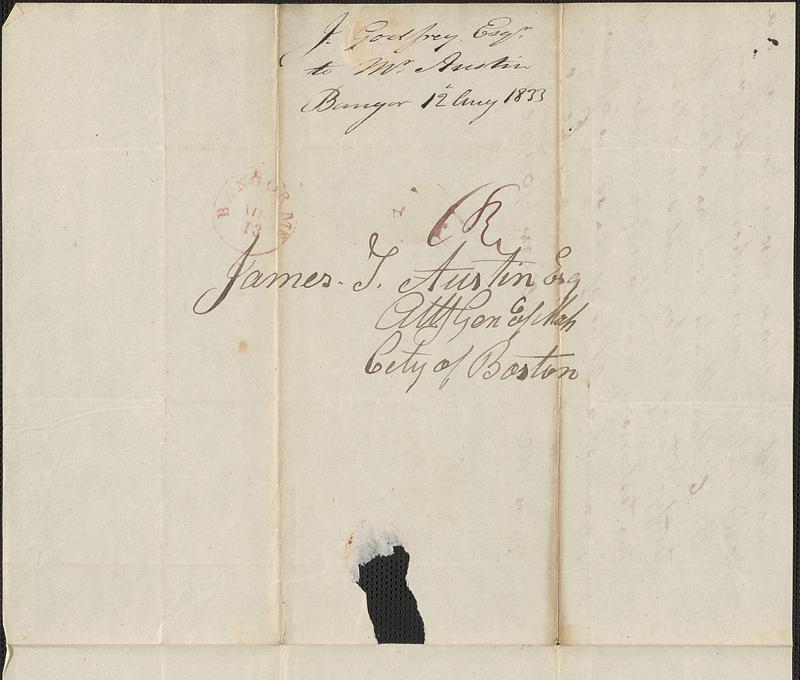 J. Godfrey Esqr.
to Mr. Austin
Bangor 12 Aug 1833
BANGOR ME
AUG
13
James. T. Austin Esq
Att Gen of Mass
City of Boston